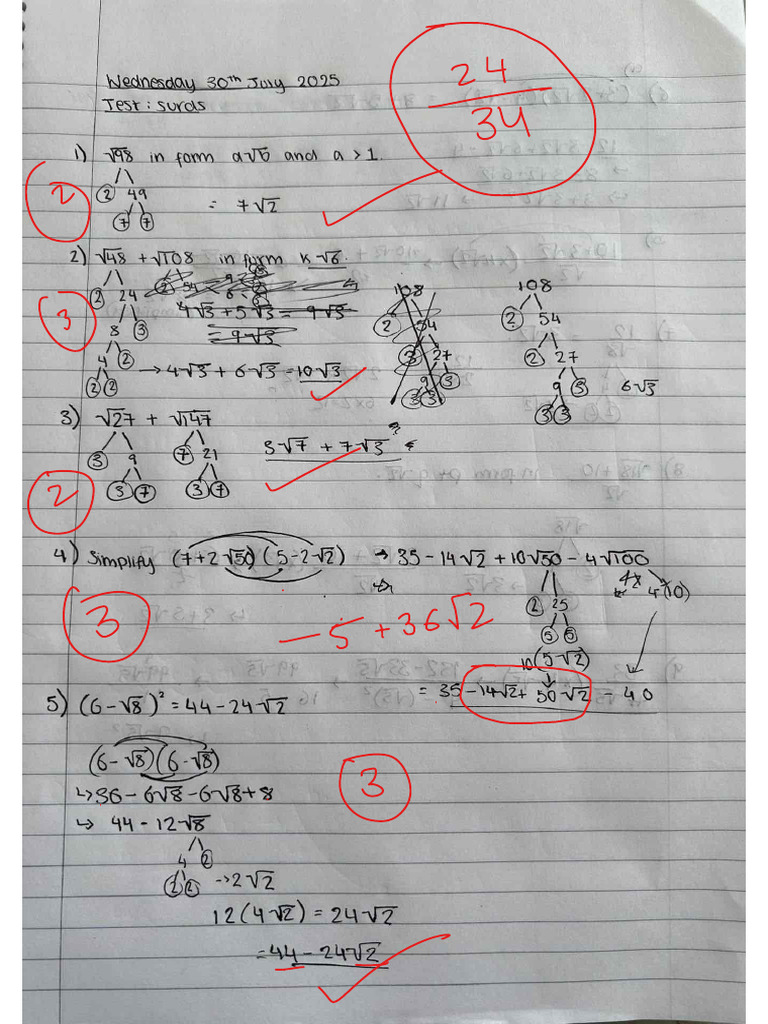 Wednesday 30th July 2025
Test: surds
24
34
1) √98 in form a√b and a > 1.
2 49
7 7
= 7√2
2
2) √48 + √108 in form k√6.
2 24
8 3
4 2
2 2
4√3 + 5√3 = 9√3
= 9√3
→ 4√3 + 6√3 = 10√3
108
2 54
3 27
9 3
3 3
108
2 54
2 27
9 3
3 3
6√3
3
3) √27 + √147
3 9
3 7
7 21
3 7
3√7 + 7√3
2
4) Simplify (7+2√50)(5-2√2) → 35 - 14√2 + 10√50 - 4√100
4(10)
2 25
5 5
10(5√2)
= 35 - 14√2 + 50√2 - 40
-5 + 36√2
3
5) (6-√8)² = 44 - 24√2
(6-√8)(6-√8)
↳ 36 - 6√8 - 6√8 + 8
↳ 44 - 12√8
4 2
2 2
→ 2√2
12(4√2) = 24√2
= 44 - 24√2
3